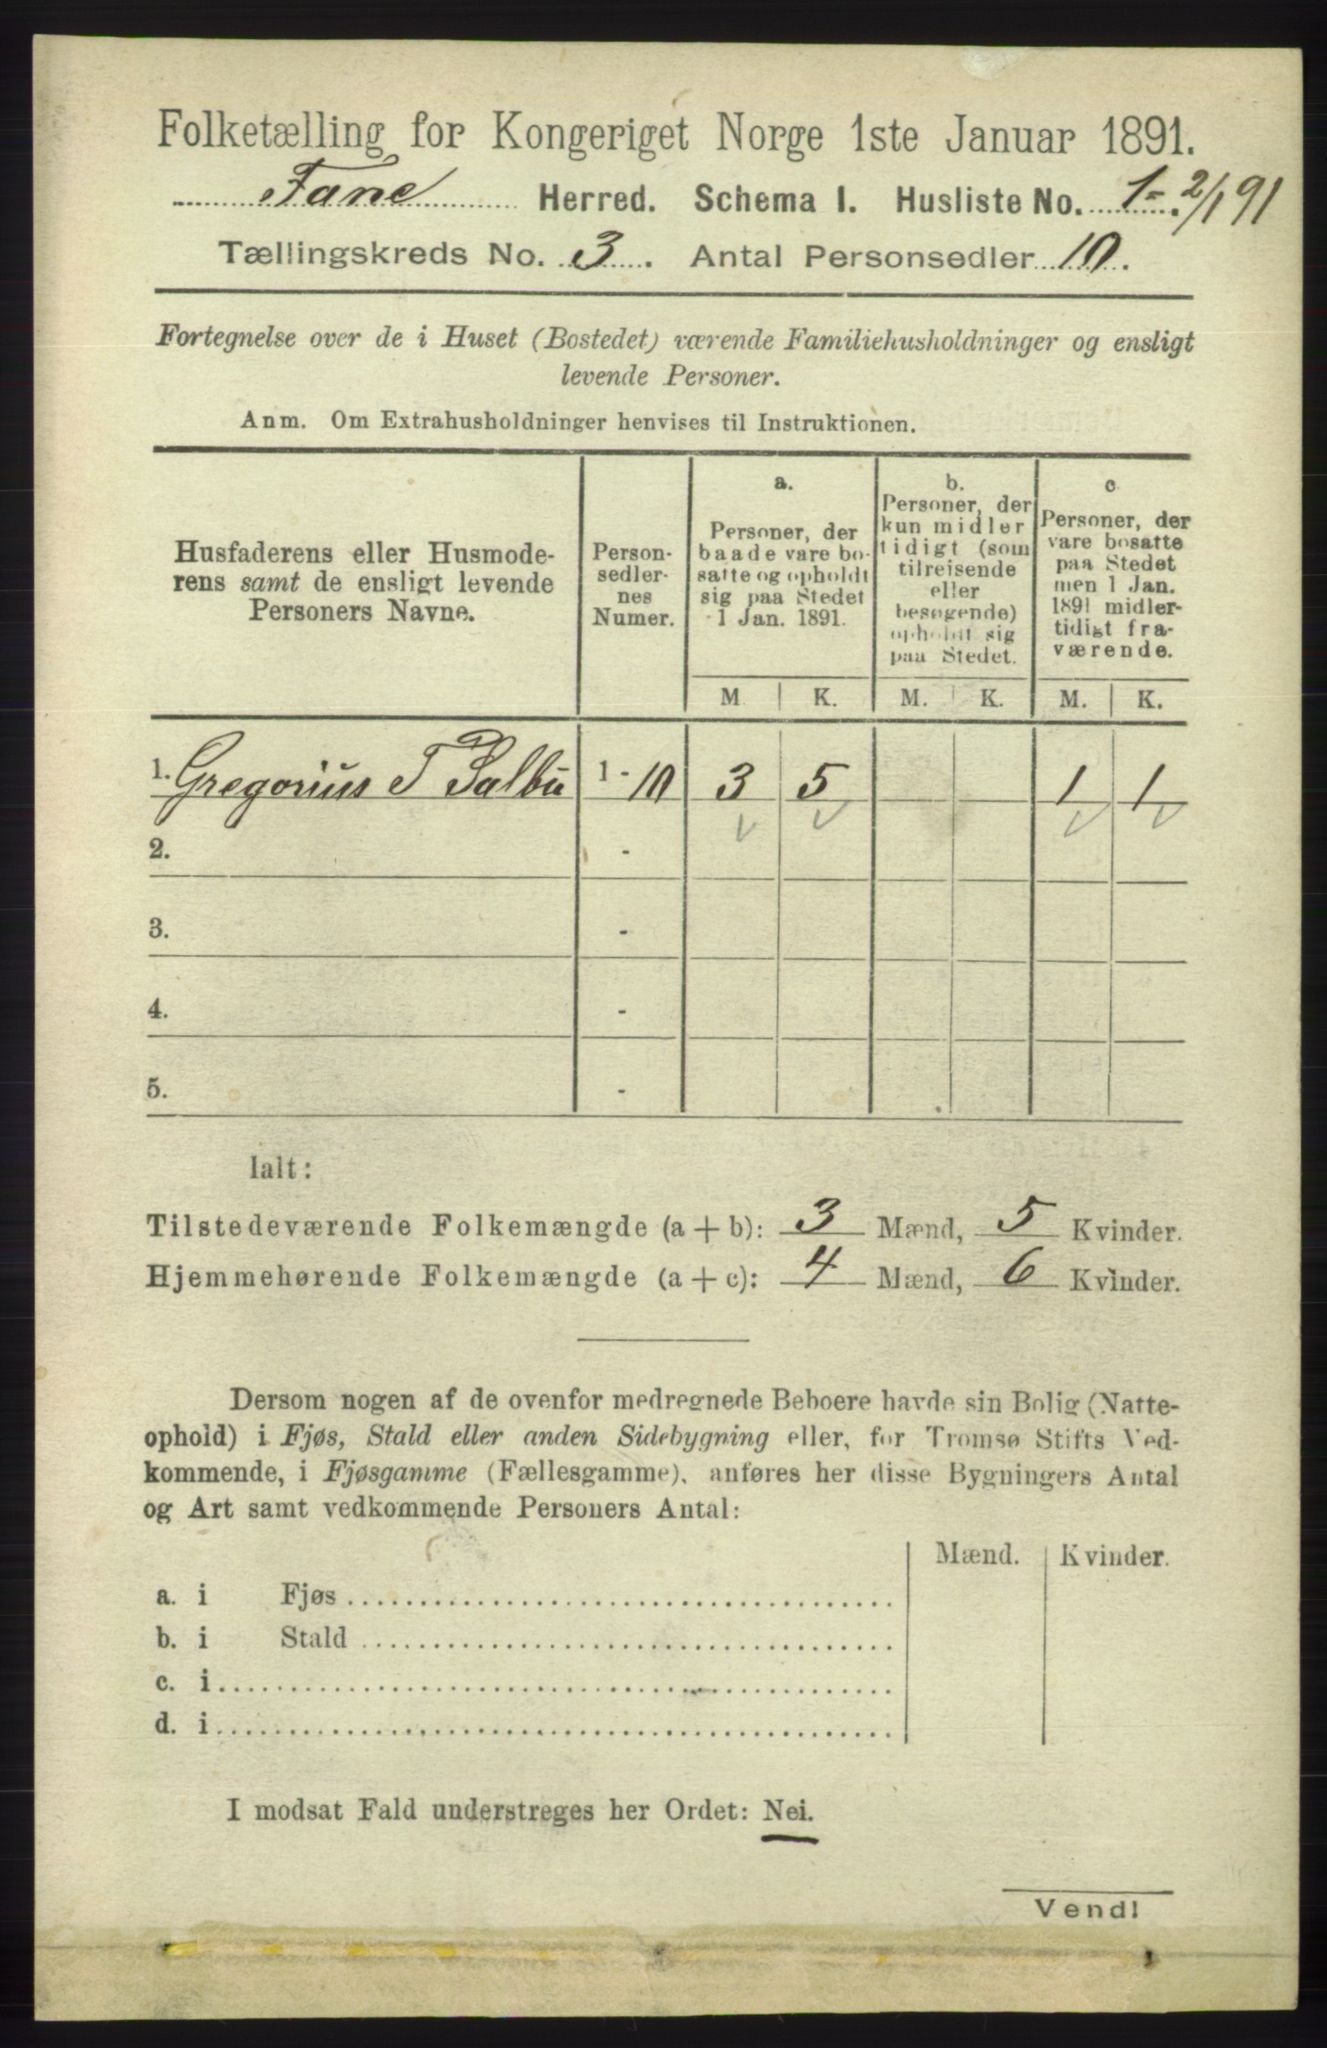 Folketælling for Kongeriget Norge 1ste Januar 1891.
Fane Herred. Schema I. Husliste No. 1 - 2/1 91
Tællingskreds No. 3. Antal Personsedler 10.
Fortegnelse over de i Huset (Bostedet) værende Familiehusholdninger og ensligt
levende Personer.
Anm. Om Extrahusholdninger henvises til Instruktionen.
Husfaderens eller Husmode-
rens samt de ensligt levende
Personers Navne.
Person-
sedler-
nes
Numer.
a.
Personer, der
baade vare bo-
satte og opholdt
sig paa Stedet
1 Jan. 1891.
b.
Personer, der
kun midler
tidigt (som
tilreisende
eller
besøgende)
opholdt sig
paa Stedet.
c
Personer, der
vare bosatte
paa Stedet
men 1 Jan.
1891 midler-
tidigt fra-
værende.
M K. M. K. M. K.
1. Gregorius T Salbu 1 - 10 3 5 1 1
2. -
3. -
4. -
5. -
Ialt:
Tilstedeværende Folkemængde (a + b): 3 Mænd, 5 Kvinder.
Hjemmehørende Folkemængde (a + c): 4 Mænd, 6 Kvinder.
Dersom nogen af de ovenfor medregnede Beboere havde sin Bolig (Natte-
ophold) i Fjøs, Stald eller anden Sidebygning eller, for Tromsø Stifts Ved-
kommende, i Fjøsgamme (Fællesgamme), anføres her disse Bygningers Antal
og Art samt vedkommende Personers Antal:
Mænd. Kvinder.
a. i Fjøs
b. i Stald
c. i
d. i
I modsat Fald understreges her Ordet: Nei.
Vend!